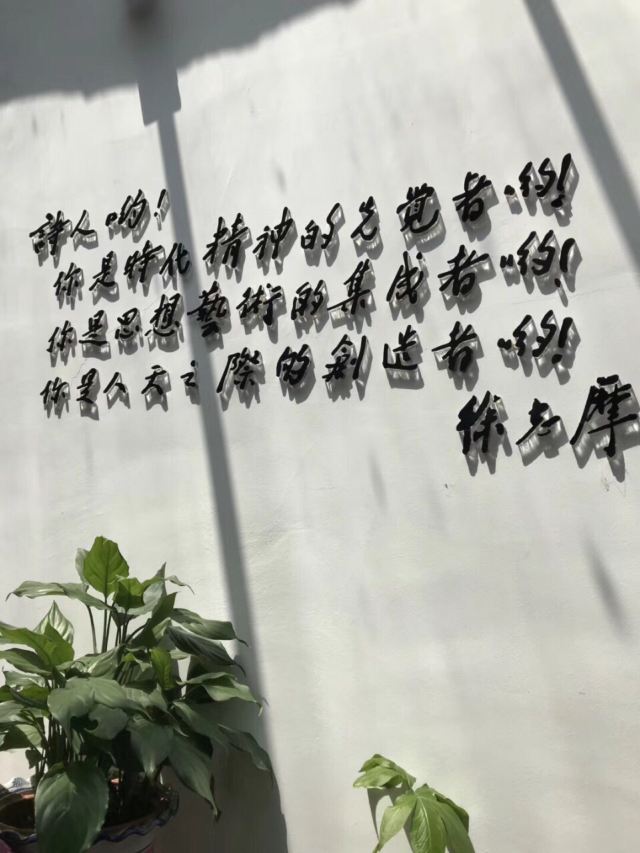 詩人哟!
你是時代精神的先覚者哟!
你是思想藝術的集成者哟!
你是人天之際的創造者哟!
徐志摩